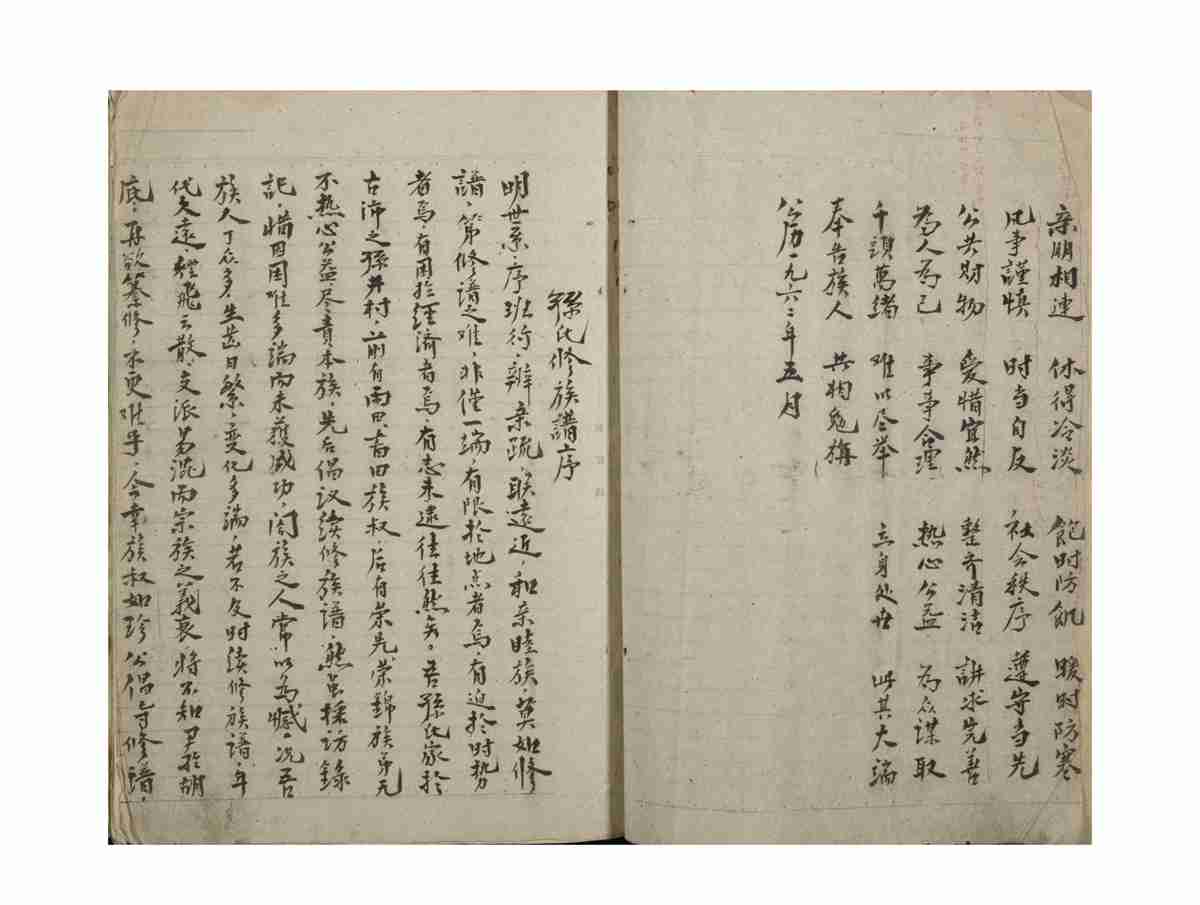 亲朋相逢 休得冷淡 飽时防飢 暖时防寒
凡事謹慎 时当自反 社会秩序 遵守当先
公共财物 愛惜宜然 整齐清洁 讲求完善
為人為己 事事合理 热心公益 為众谋取
千頭萬绪 难以尽举 立身处世 此其大端
奉告族人 共相勉旃
公历一九六二年五月
孫氏修族譜序
明世系，序班行，辨亲疏，联遠近，和亲睦族，莫如修
譜，第修谱之难，非僅一端，有限於地点者焉，有迫於时势
者焉，有困於經濟者焉，有志未逮往往然矣。吾孫氏家於
古沛之孫井村，前有雨田、書田族叔，后有荣先、荣錦族弟，无
不热心公益，尽責本族，先后倡议续修族谱，然虽採訪錄
記，惜因困难多端而未獲咸功，阖族之人常以為憾，况吾
族人丁众多，生齿日繁，变化多端，若不及时续修族谱，年
代久远，經飞云散，支派易混而宗族之義衰，将不知尹於胡
底，再欲纂修，不更难乎，今幸族叔如珍公倡导修譜，